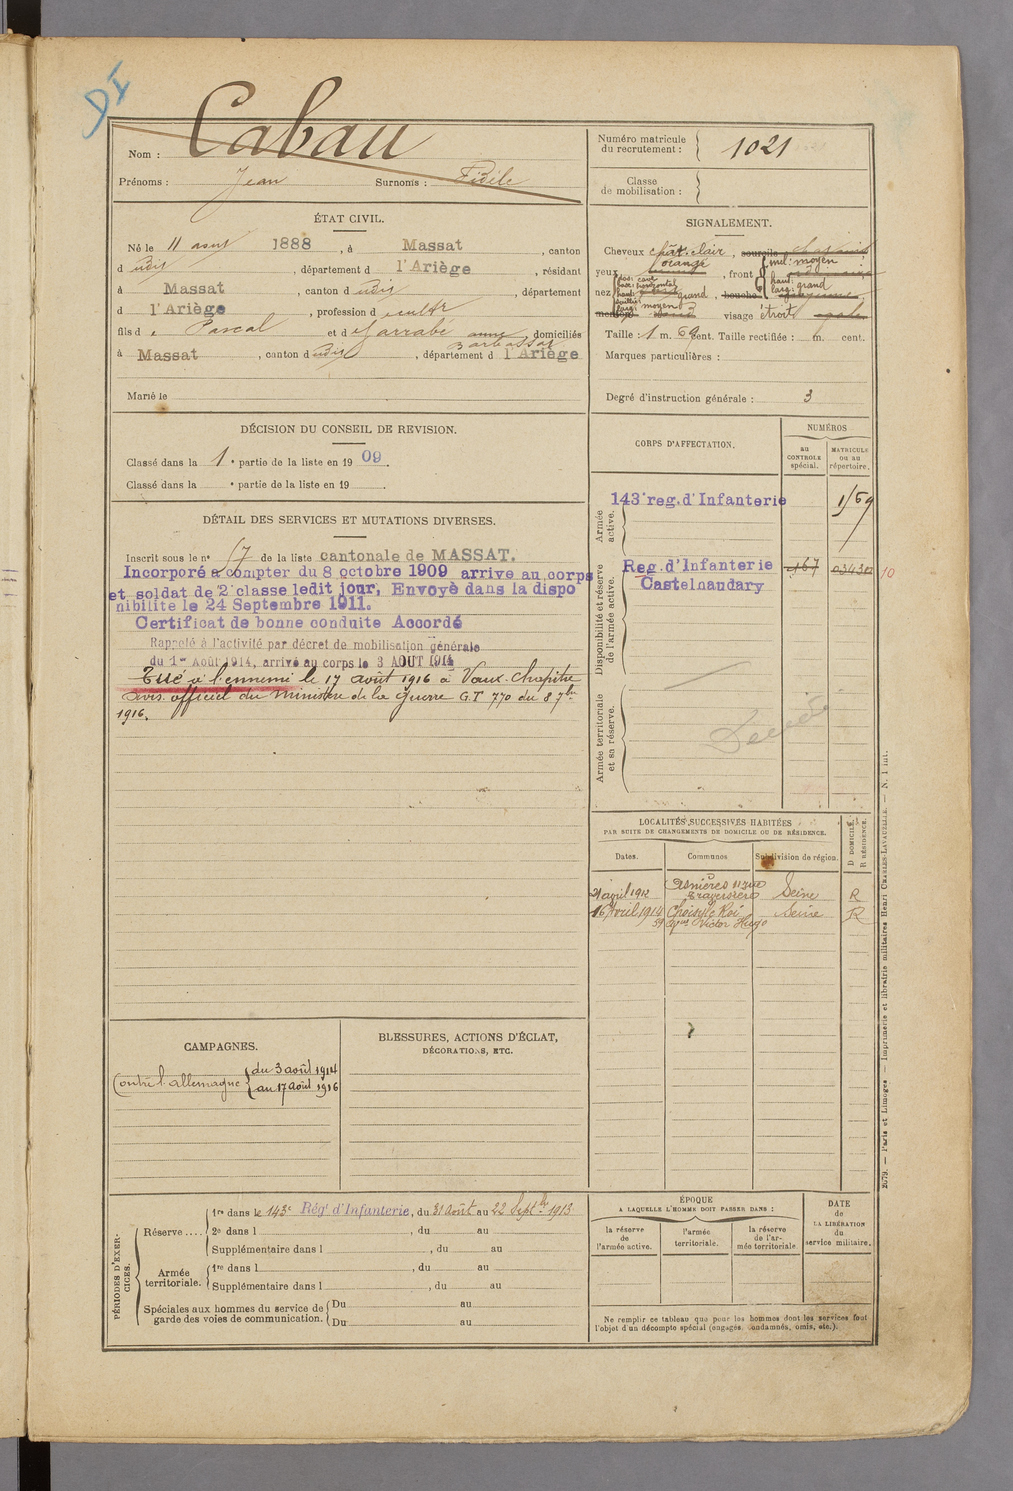 DI
Nom : Cabau
Prénoms : Jean Surnoms : Fidèle
Numéro matricule du recrutement : 1021
Classe de mobilisation :
ÉTAT CIVIL.
Né le 11 aout 1888, à Massat, canton
d udit, département d l'Ariège, résidant
à Massat, canton d udit, département
d l'Ariège, profession d cultr
fils d e Pascal et d Jarrabé anne domiciliés
à Massat, canton d udit, département d l'Ariège
Marié le
SIGNALEMENT.
Cheveux chât. clair, sourcils châtains
yeux orangé, front { incl: moyen
haut:
larg: grand
nez { dos: cave
base: horizontal
haut:
saillie:
larg: moyen
grand, bouche moyenne
menton rond visage étroit
Taille : 1 m. 69 cent. Taille rectifiée : m. cent.
Marques particulières :
Degré d'instruction générale : 3
DÉCISION DU CONSEIL DE REVISION.
Classé dans la 1e partie de la liste en 1909.
Classé dans la e partie de la liste en 19 .
DÉTAIL DES SERVICES ET MUTATIONS DIVERSES.
Inscrit sous le n° 17 de la liste cantonale de MASSAT.
Incorporé à compter du 8 octobre 1909 arrive au corps
et soldat de 2e classe ledit jour, Envoyè dans la dispo
nibilite le 24 Septembre 1911.
Certificat de bonne conduite Accordé
Rappelé à l'activité par décret de mobilisation générale
du 1er Août 1914, arrivé au corps le 3 AOUT 1914
Tué à l'ennemi le 17 août 1916 à Vaux-Chapitre
Avis officiel du Ministre de la Guerre G.T 770 du 8 7bre
1916.
CORPS D'AFFECTATION.
NUMÉROS
au CONTROLE spécial.
MATRICULE OU AU répertoire.
Armée active.
143e reg. d'Infanterie
Disponibilité et réserve de l'armée active.
Reg. d'Infanterie 167 03430 10
Castelnaudary
Armée territoriale et sa réserve.
Décédé
LOCALITÉS SUCCESSIVES HABITÉES
PAR SUITE DE CHANGEMENTS DE DOMICILE OU DE RÉSIDENCE.
Dates. Communes Subdivision de région. D DOMICILE. R RÉSIDENCE.
21 avril 1912 Asnières 11 rue Traversière Seine R
16 Avril 1914 Choisy le Roi Seine R
Victor Hugo
CAMPAGNES.
Contre l'allemagne { du 3 août 1914
au 17 août 1916
BLESSURES, ACTIONS D'ÉCLAT,
DÉCORATIONS, ETC.
PÉRIODES D'EXERCICES.
Réserve....
1re dans le 143e Rég. d'Infanterie, du 31 août au 22 Septbre 1913
2e dans l , du au
Supplémentaire dans l , du au
Armée territoriale.
1re dans l , du au
Supplémentaire dans l , du au
Spéciales aux hommes du service de garde des voies de communication.
Du au
Du au
ÉPOQUE
A LAQUELLE L'HOMME DOIT PASSER DANS :
la réserve de l'armée active.
l'armée territoriale.
la réserve de l'armée territoriale
DATE de LA LIBÉRATION du service militaire.
Ne remplir ce tableau que pour les hommes dont les services font
l'objet d'un décompte spécial (engagés, condamnés, omis, etc.).
2679. — Paris et Limoges. — Imprimerie et librairie militaires Henri CHARLES-LAVAUZELLE. — N. 1 int.